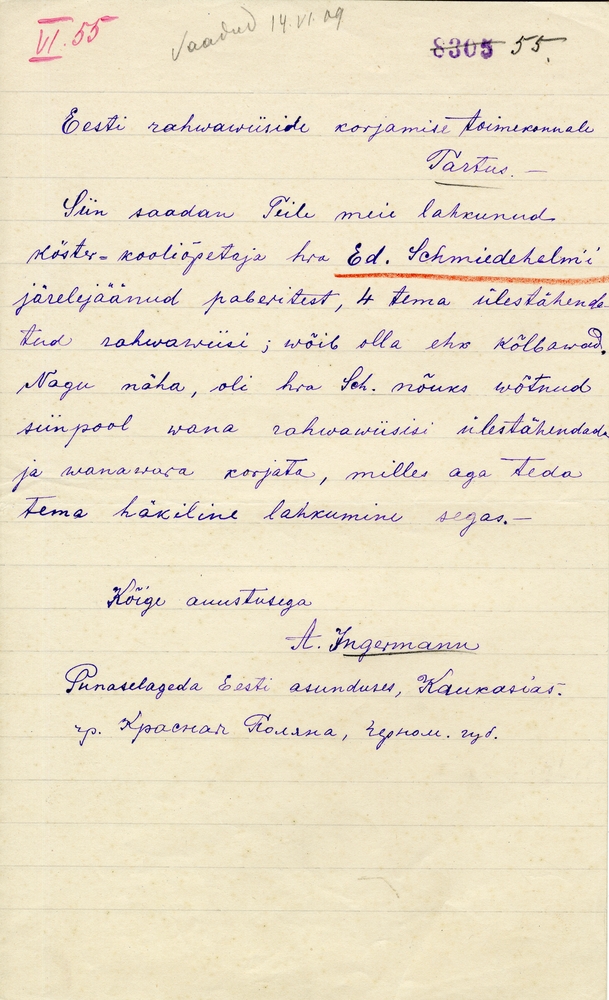 VI. 55
Saadud 14.VI.09
8305 55.
Eesti rahwawiiside korjamise toimekonnale
Tartus. —
Siin saadan Teile meie lahkunud
köster-kooliõpetaja hra Ed. Schmiedehelm'i
järelejäänud paberitest, 4 tema ülestähenda
tud rahwawiisi; wõib olla ehk kõlbawad.
Nagu näha, oli hra Sch. nõuks wõtnud
siinpool wana rahwawiisisi ülestähendada
ja wanawara korjata, milles aga teda
tema häkiline lahkumine segas. —
Kõige auustusega
A. Ingermann
Punaselageda Eesti asunduses, Kaukasias.
гр. Красная Поляна, Черном. губ.